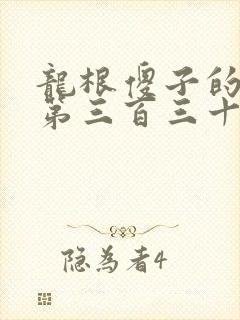 龍根傻子的
第三百三十
隐为者4